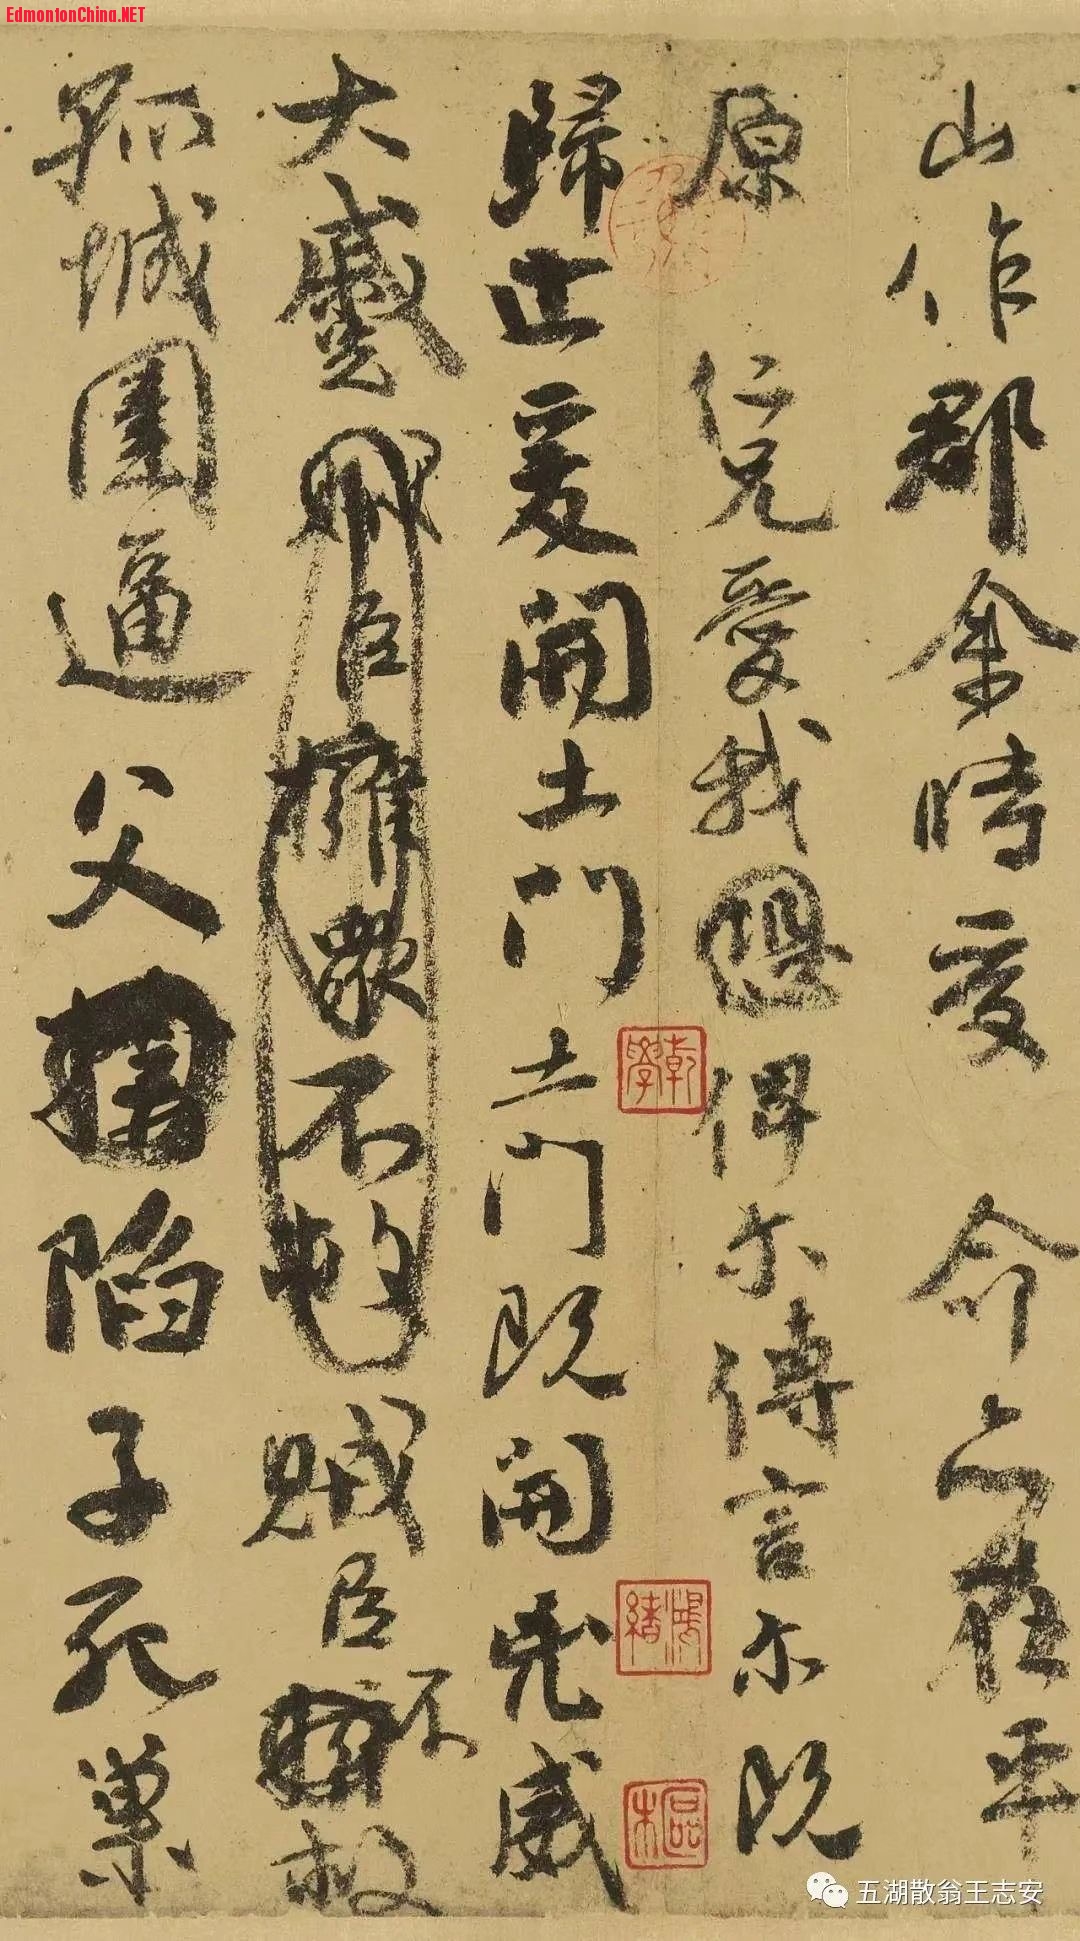 EdmontonChina.NET
山作郡余時受 命亦在平
原 仁兄愛我恐俾尔傳言尔既
歸止爰開土門土門既開凶威
大蹙賊臣擁衆不救賊臣不救
孤城圍逼父陷子死巢
乾學
鴻緒
五湖散翁王志安